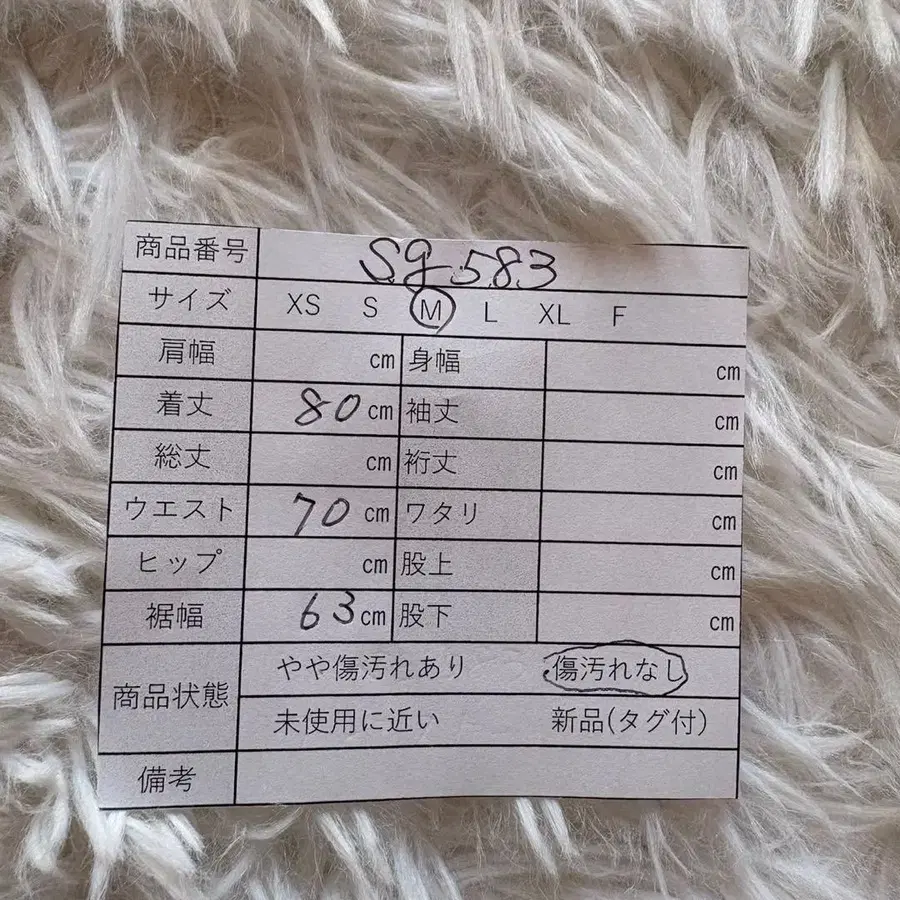 商品番号 Sg583
サイズ XS S M L XL F
肩幅 cm 身幅 cm
着丈 80cm 袖丈 cm
総丈 cm 裄丈 cm
ウエスト 70cm ワタリ cm
ヒップ cm 股上 cm
裾幅 63cm 股下 cm
商品状態 やや傷汚れあり 傷汚れなし
未使用に近い 新品(タグ付)
備考